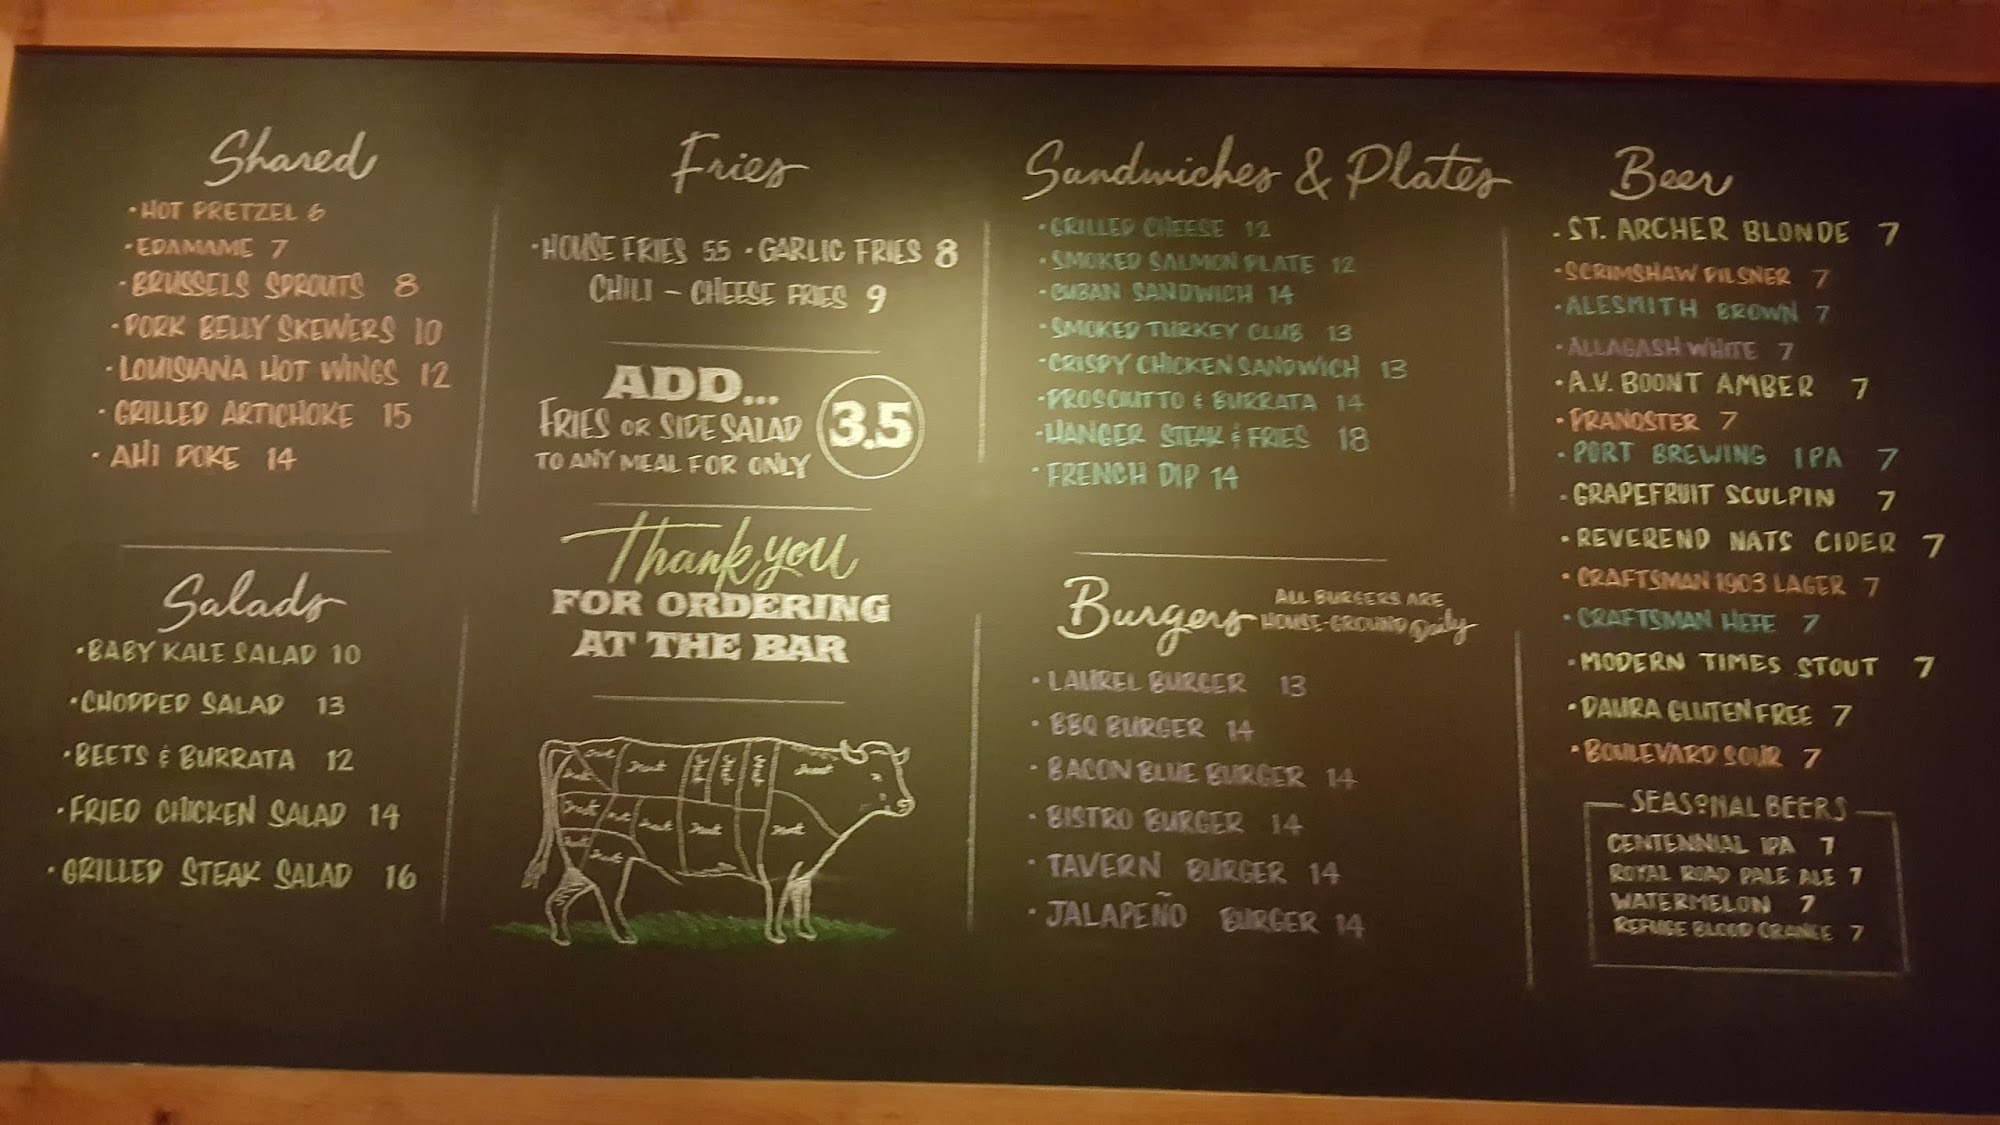 Shared
· HOT PRETZEL 6
· EDAMAME 7
· BRUSSELS SPROUTS 8
· PORK BELLY SKEWERS 10
· LOUISIANA HOT WINGS 12
· GRILLED ARTICHOKE 15
· AHI POKE 14
Salads
· BABY KALE SALAD 10
· CHOPPED SALAD 13
· BEETS & BURRATA 12
· FRIED CHICKEN SALAD 14
· GRILLED STEAK SALAD 16
Fries
· HOUSE FRIES 5.5 · GARLIC FRIES 8
CHILI - CHEESE FRIES 9
ADD...
FRIES OR SIDE SALAD
TO ANY MEAL FOR ONLY
3.5
Thank you
FOR ORDERING
AT THE BAR
Sandwiches & Plates
· GRILLED CHEESE 12
· SMOKED SALMON PLATE 12
· CUBAN SANDWICH 14
· SMOKED TURKEY CLUB 13
· CRISPY CHICKEN SANDWICH 13
· PROSCIUTTO & BURRATA 14
· HANGER STEAK & FRIES 18
· FRENCH DIP 14
Burgers
ALL BURGERS ARE
HOUSE-GROUND Daily
· LAUREL BURGER 13
· BBQ BURGER 14
· BACON BLUE BURGER 14
· BISTRO BURGER 14
· TAVERN BURGER 14
· JALAPEÑO BURGER 14
Beer
· ST. ARCHER BLONDE 7
· SCRIMSHAW PILSNER 7
· ALESMITH BROWN 7
· ALLAGASH WHITE 7
· A.V. BOONT AMBER 7
· PRANQSTER 7
· PORT BREWING IPA 7
· GRAPEFRUIT SCULPIN 7
· REVEREND NATS CIDER 7
· CRAFTSMAN 1903 LAGER 7
· CRAFTSMAN HEFE 7
· MODERN TIMES STOUT 7
· DAURA GLUTEN FREE 7
· BOULEVARD SOUR 7
SEASONAL BEERS
CENTENNIAL IPA 7
ROYAL ROAD PALE ALE 7
WATERMELON 7
REFUGE BLOOD ORANGE 7